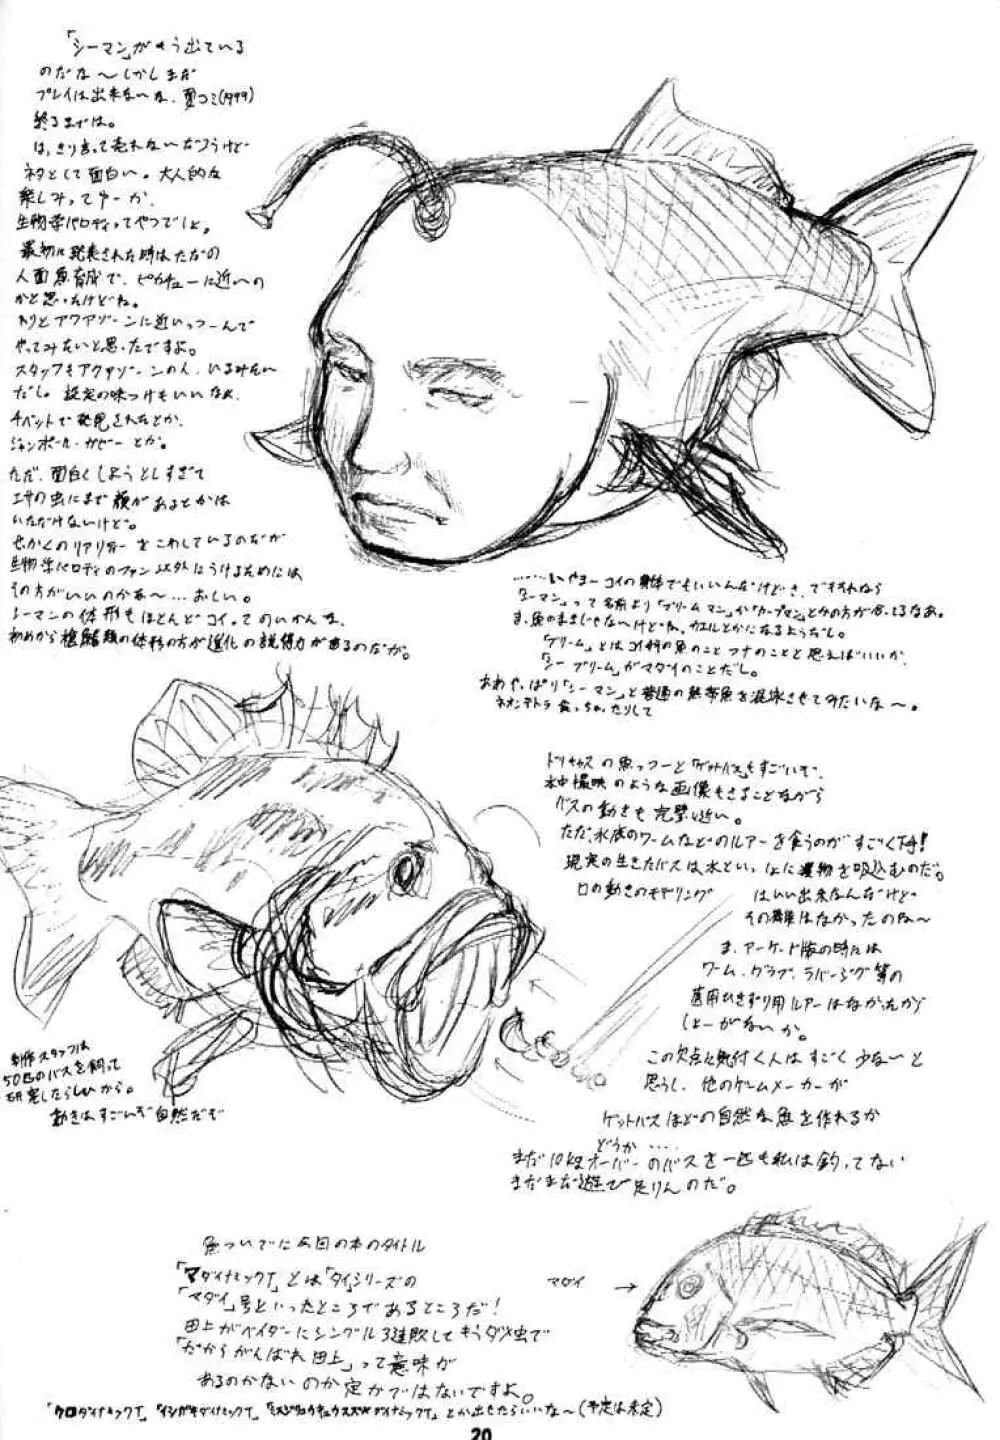 「シーマン」がもう出ている
のだな〜しかしまだ
プレイは出来な〜な、夏コミ(1999)
終るまでは。
は、きり言って売れないだろうけど
ネタとして面白い。大人的な
楽しみってゆーか、
生物学パロディってやつでしょ。
最初に発表された時はただの
人面魚育成で、ピカチューに近いの
かと思ったけどね。
わりとアクアゾーンに近いっつーんで
やってみたいと思ったですよ。
スタッフもアクアゾーンの人、いるみたい
だし。設定の味つけもいいなぁ、
チベットで発見されたとか、
ジャンポール・ガゼーとか。
ただ、面白くしようとしすぎて
エサの虫にまで顔があるとかは
いただけないけど。
せっかくのリアリティーをこわしているのだが
生物学パロディのファン以外にうけるためには
その方がいいのかあ〜…おしい。
シーマンの体形もほとんどコイってのいかんな、
初めから総鰭類の体形の方が進化の説得力があるのだが。
……いやまーコイの身体でもいいんだけどさ、ですそれなら
「シーマン」って名前より「ブリームマン」か「カープマン」とかの方が合ってるなあ。
ま、魚のままじゃな〜けどね、カエルとかになるようだし。
「ブリーム」とはコイ科の魚のこと フナのことと思えばいいか、
「シーブリーム」がマダイのことだし。
ああやっぱり「シーマン」と普通の熱帯魚を混泳させてみたいな〜。
ネオンテトラ食っちゃったりして
ドリキャスの魚っつーと「ゲットバス」もすごいぞ、
水中撮映のような画像もさることながら
バスの動きも完璧に近い。
ただ、水底のワームなどのルアーを食うのがすごく下手!
現実の生きたバスは水といっしょに獲物を吸込むのだ。
口の動きのモデリング
はいい出来なんだけど
その再現はなかったのね〜
ま、アーケード版の時には
ワーム、グラブ、ラバージグ等の
底用ひきずり用ルアーはなかったから
しょーがないか。
この欠点に気付く人はすごく少な〜と
思うし、他のゲームメーカーが
ゲットバスほどの自然な魚を作れるか
どうか……
まだ10kgオーバーのバスを一匹も私は釣ってない
まだまだ遊び足りんのだ。
制作スタッフは
50匹のバスを飼って
研究したらしいから。
動きはすごいぞ自然だぞ
魚ついでに今回の本のタイトル
「マダイナミックT」とは「タイシリーズの
「マダイ」号といったところであるところだ!
田上がベイダーにシングル3連敗してもうダメ虫で
「だからがんばれ田上」って意味が
あるのかないのか定かではないですよ。
マダイ →
「クロダイナミックT」「イシガキダイナミックT」「ミスジリュウキュウスズメダイナミックT」とか出せたらいいな〜(予定は未定)
20